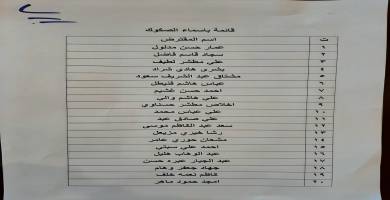 قائمة باسماء الصكوك
ت اسم المقترض
١ عمار حسن مدلول
٢ سجاد قاسم فاضل
٣ علي مطشر لطيف
٤ بشرى هادي شراد
٥ مشتاق عبد الشريف سعود
٦ عباس هاشم
٧ احمد حسن غشيم
٨ علي هاشم والي
٩ اخلاص مطشر حسناوي
١٠ علي عباس محمد
١١ علي صادق عبد
١٢ سعد عبد الكاظم موسى
١٣ رشا خيري مزيعل
١٤ مشحان حوري عامر
١٥ احمد علي سبتي
١٦ عبد الوهاب
١٧ عبد الجبار عبره حسن
١٨ جهاد جعفر وهام
١٩ كاظم نعمه خلف
٢٠ امجد حمود ماهر